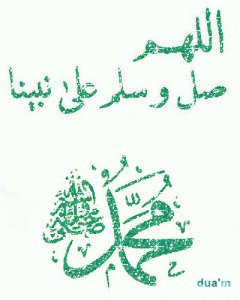 اللهم
صل وسلم على نبينا
محمد
صلى الله عليه وسلم
dua'm